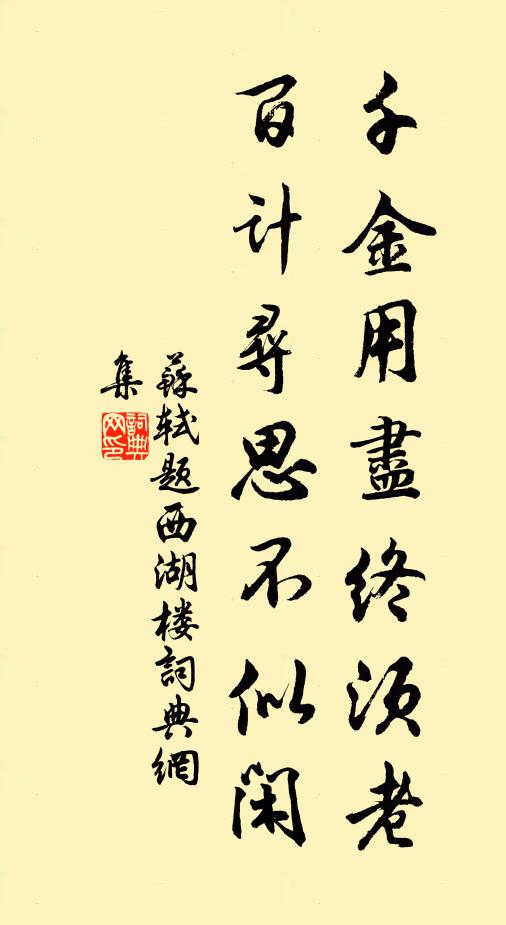 千金用盡終須老
百計尋思不似閑
蘇轼題西湖楼詞典網
集
詞典
网印